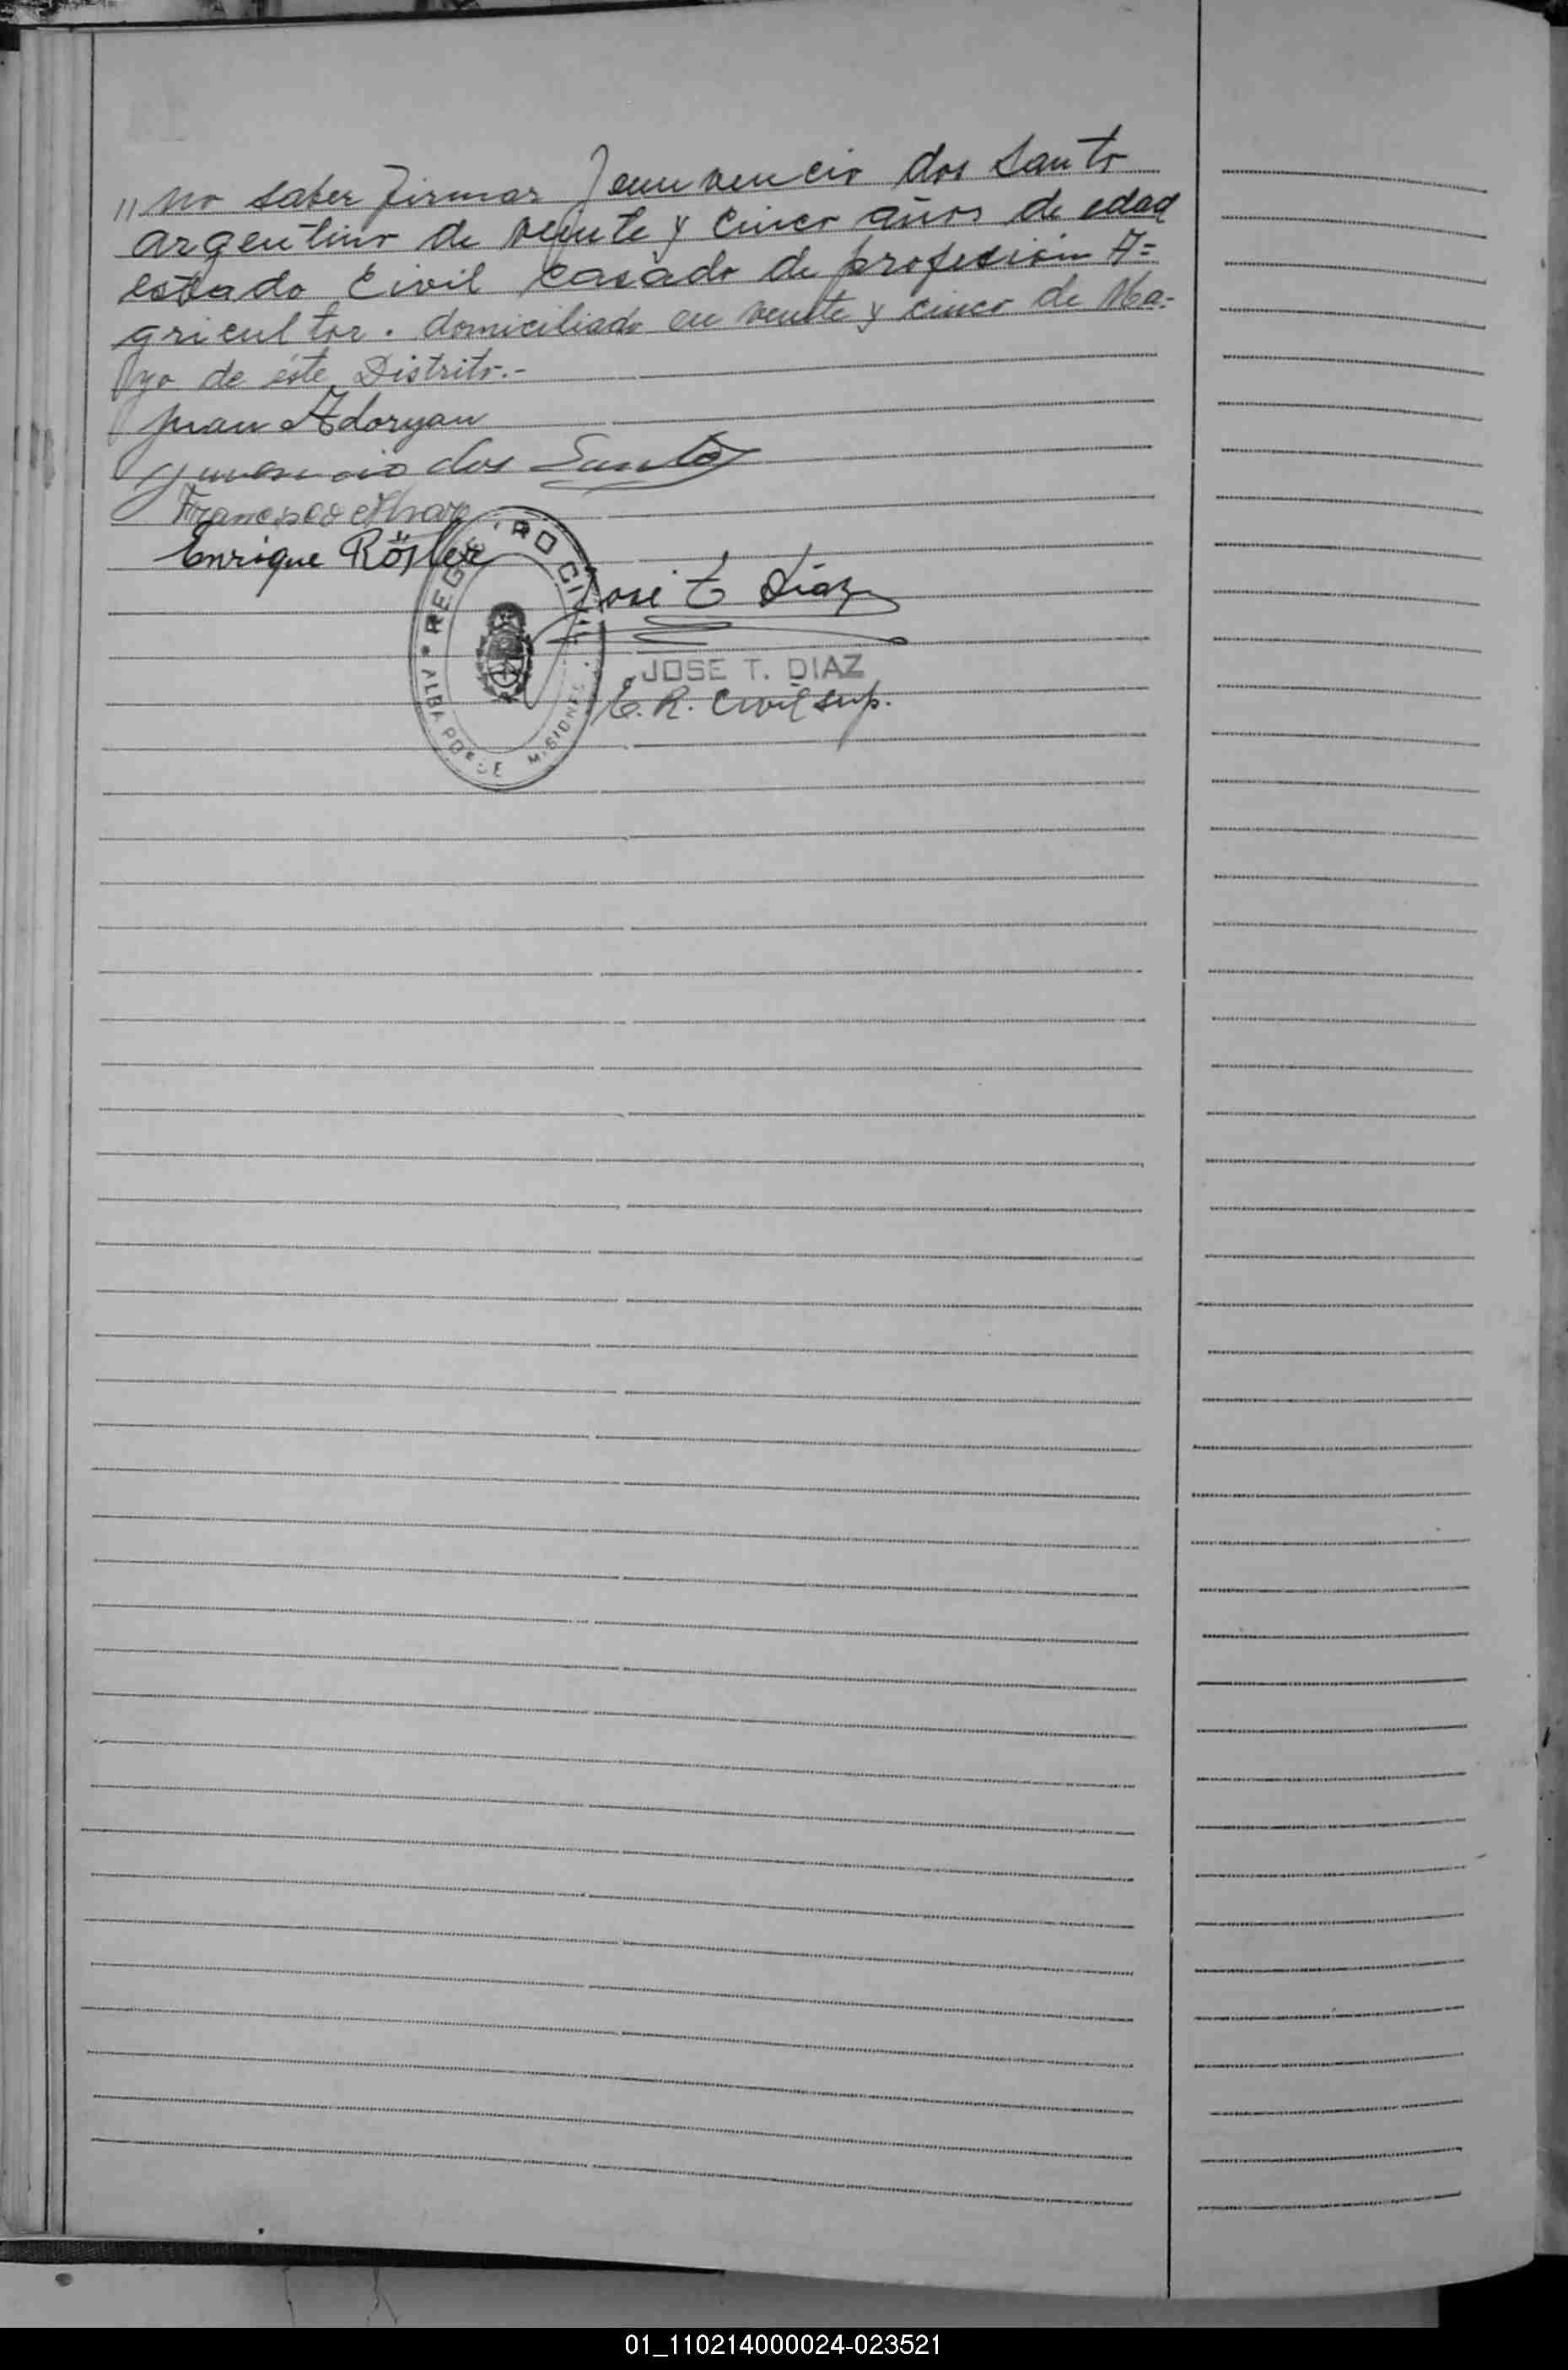 "no saber firmar Jenuvencio dos Santo
argentino de veinte y cinco años de edad
estado Civil casado de profesión A=
gricultor. domiciliado en veinte y cinco de Ma-
yo de éste Distrito.-
Juan Adoryan
dos Santos
Francisco
Enrique Rösler
José T Díaz
JOSE T. DIAZ
E. R. Civil Sup.
REGISTRO CIVIL
ALBA POSSE MISIONES
01_110214000024-023521